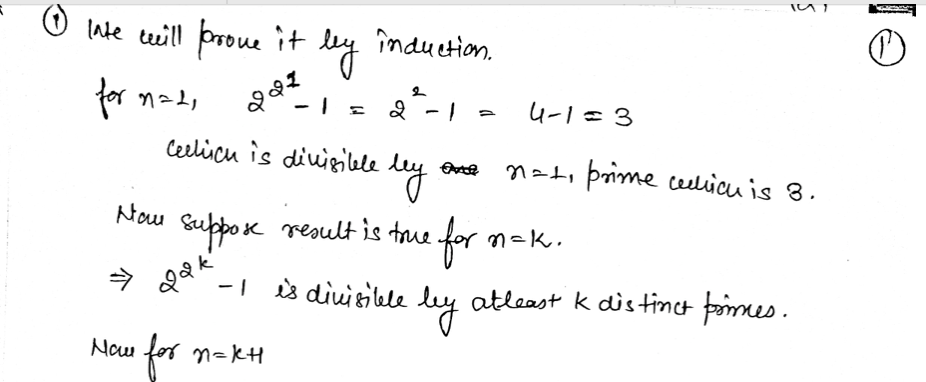 ① We will prove it by induction. ①
for n=1, 2^{2^1} - 1 = 2^2 - 1 = 4-1 = 3
which is divisible by n=1, prime which is 3.
Now suppose result is true for n=k.
⇒ 2^{2^k} - 1 is divisible by atleast k distinct primes.
Now for n=k+1